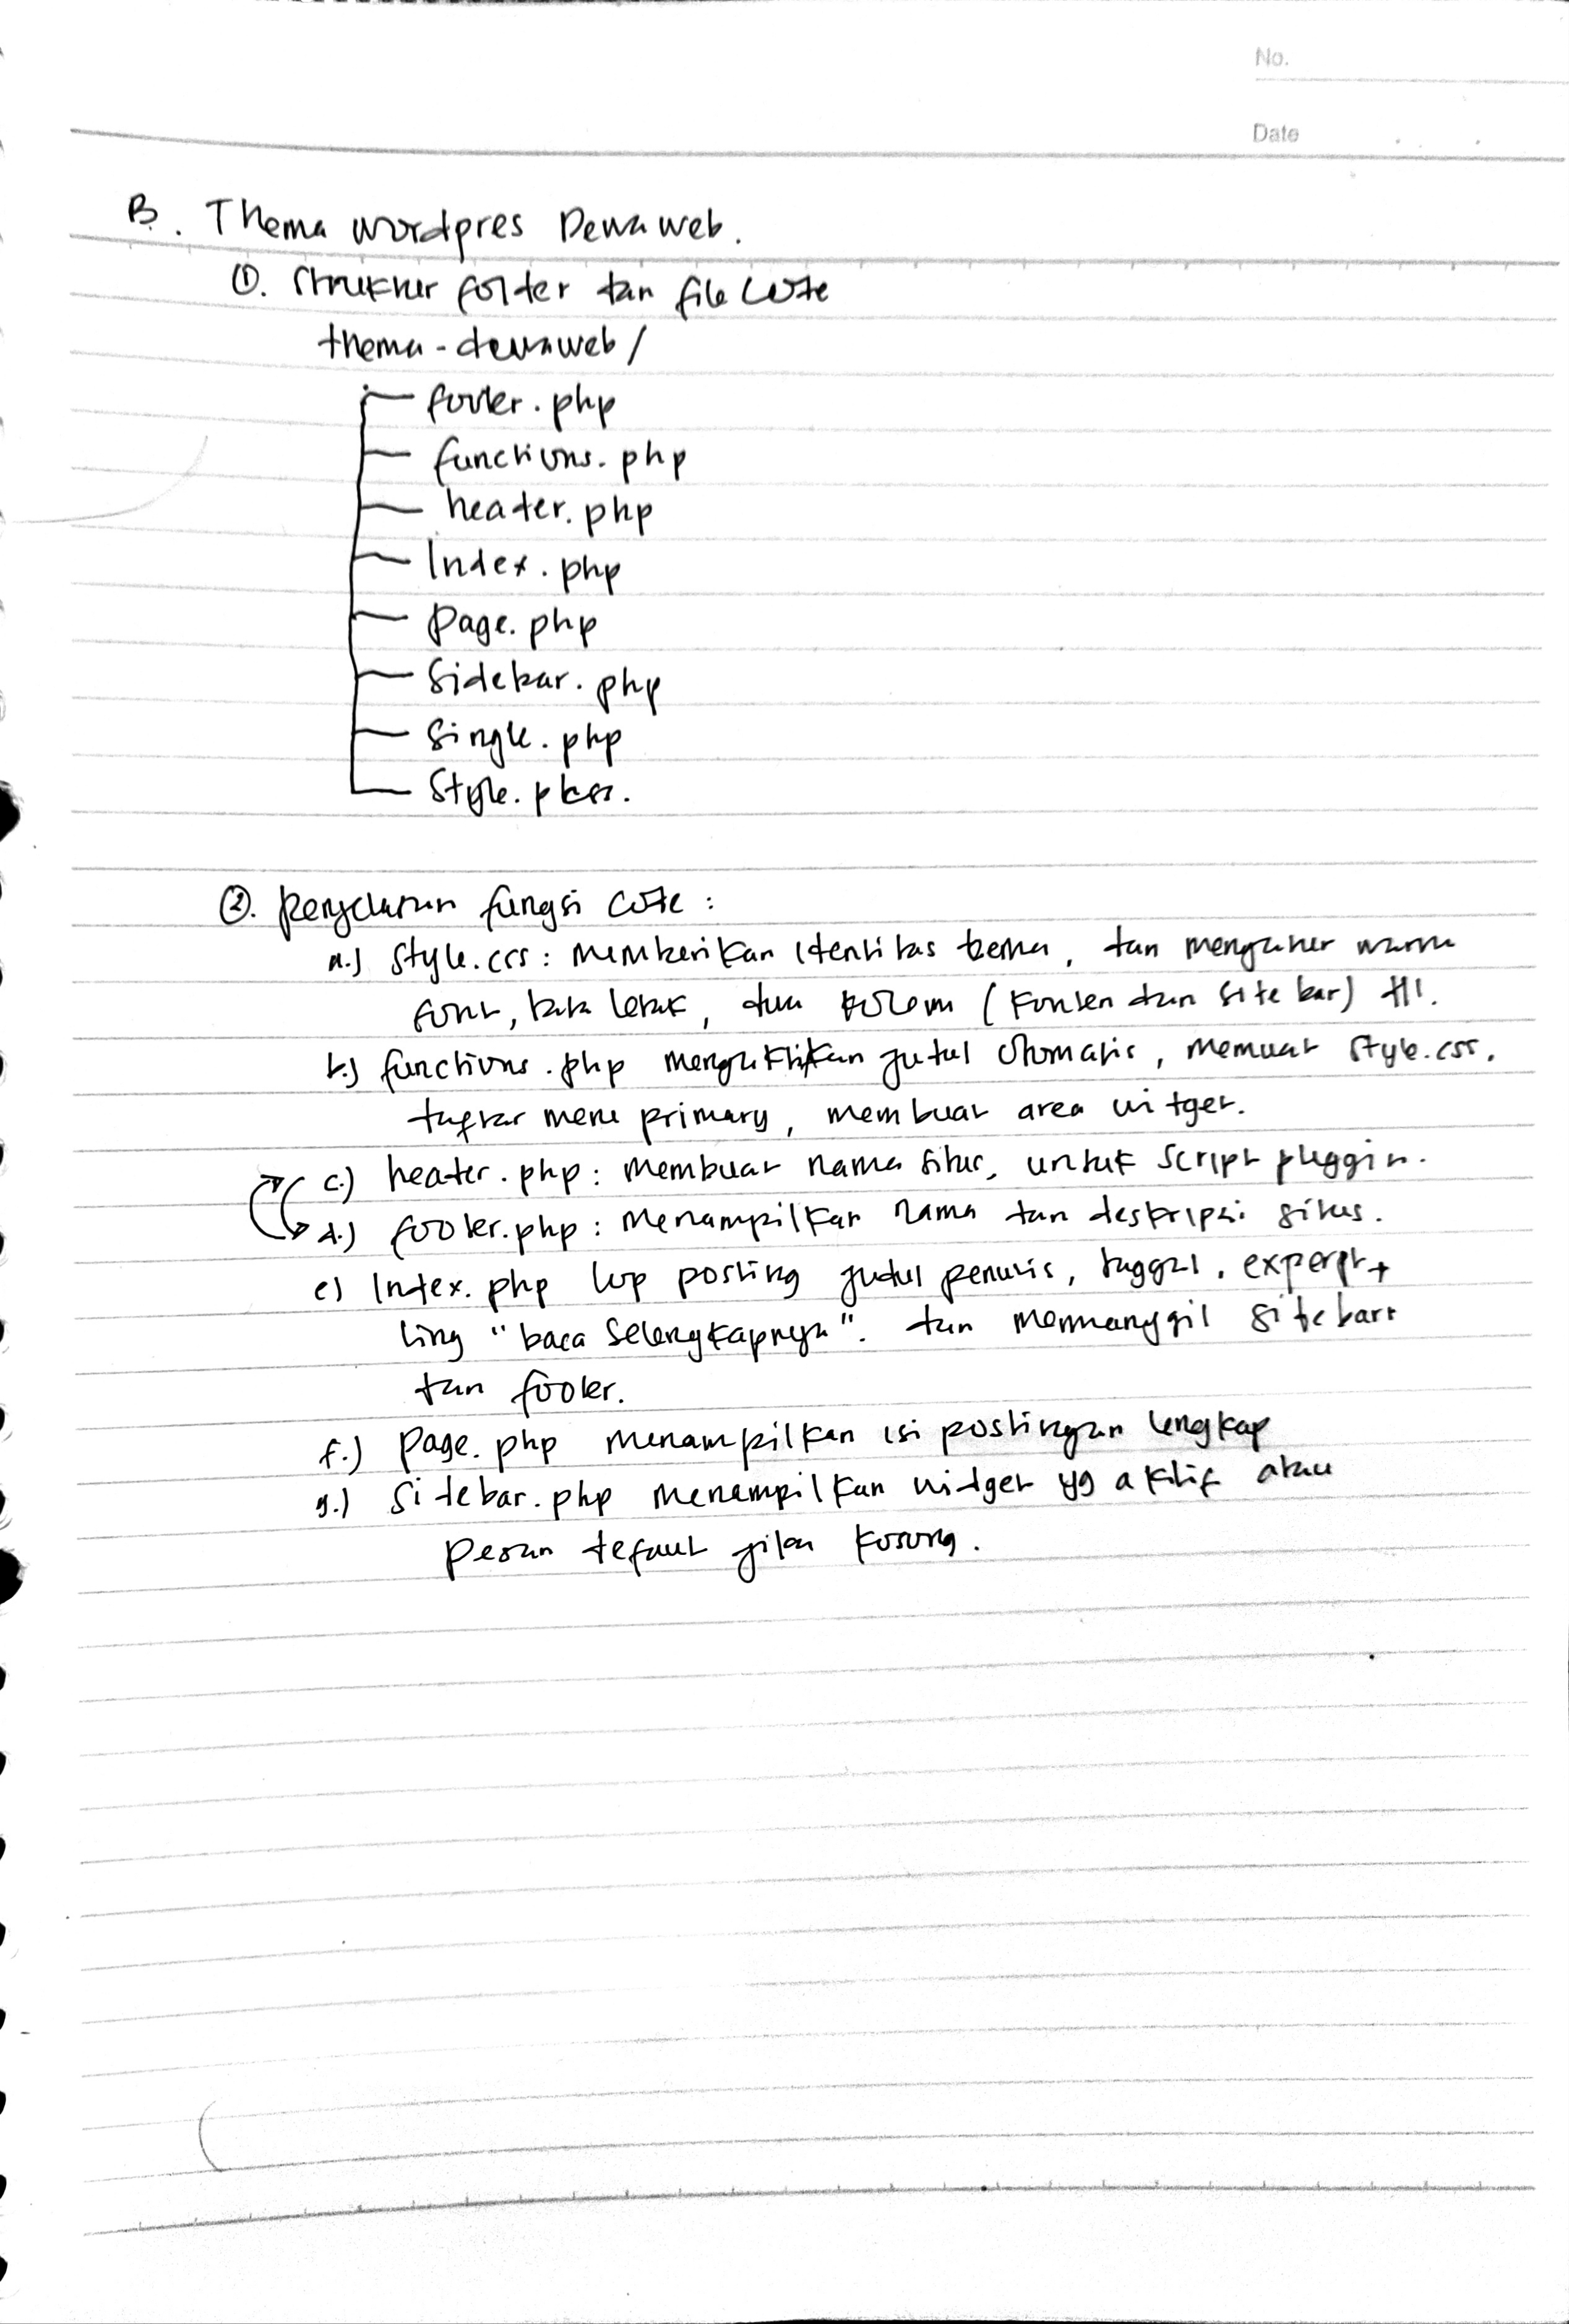 No.
Date
B. Thema wordpres Dewaweb.
①. Struktur folder dan file code
thema-dewaweb/
footer.php
functions.php
header.php
Index.php
page.php
Sidebar.php
Single.php
Style.
②. penjelasan fungsi code :
a.) Style.css : memberikan identitas tema, dan mengatur warna
font, tata letak, dua kolom (konten dan side bar) dll.
b.) functions.php mengaktifkan judul otomatis, memuat style.css.
daftar menu primary, membuat area widget.
c.) header.php : membuat nama situs, untuk script pluggin.
d.) footer.php : menampilkan nama dan deskripsi situs.
e) Index.php loop posting judul penulis, tanggal, experpt +
ling "baca selengkapnya". dan memanggil sidebar
dan footer.
f.) page.php menampilkan isi postingan lengkap
g.) Sidebar.php menampilkan widget yg aktif atau
pesan default jika kosong.